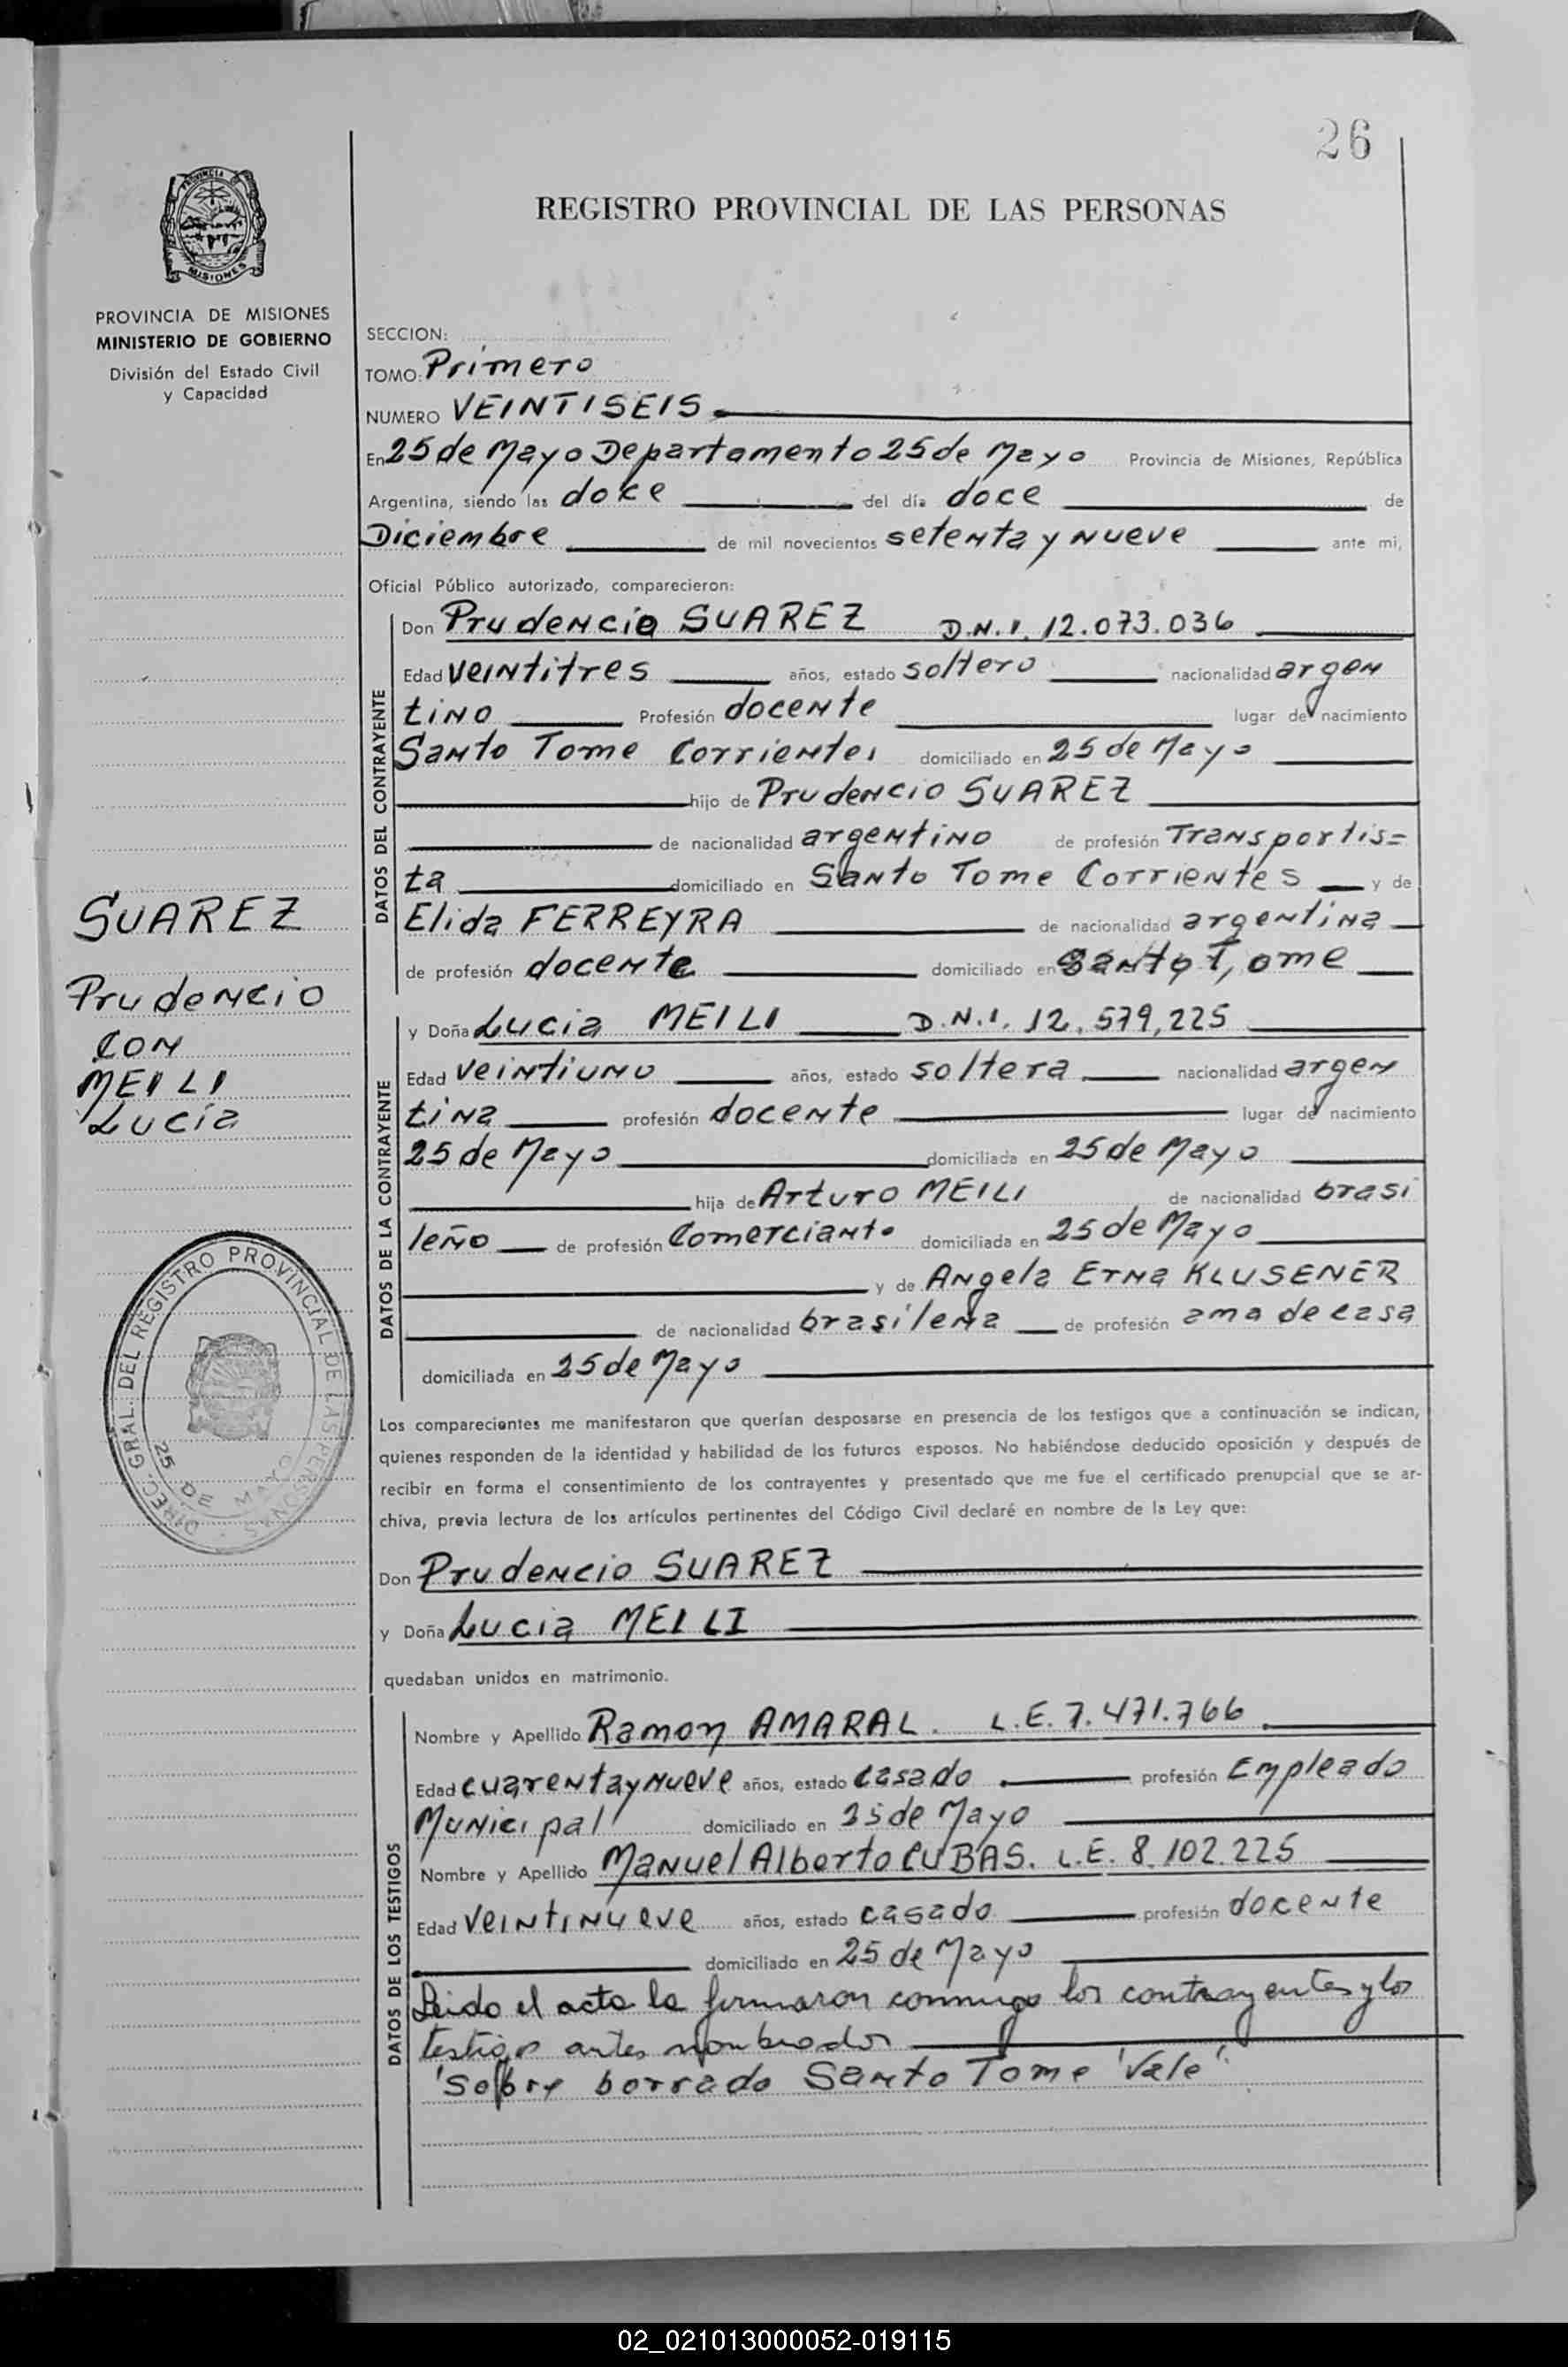 26
REGISTRO PROVINCIAL DE LAS PERSONAS
PROVINCIA DE
MISIONES
PROVINCIA DE MISIONES
MINISTERIO DE GOBIERNO
División del Estado Civil
y Capacidad
SECCION:
TOMO: Primero
NUMERO VEINTISEIS
En 25 de Mayo Departamento 25 de Mayo Provincia de Misiones, República
Argentina, siendo las doce del día doce de
Diciembre de mil novecientos setenta y nueve ante mi,
Oficial Público autorizado, comparecieron:
DATOS DEL CONTRAYENTE
Don Prudencio SUAREZ D.N.I. 12.073.036
Edad veintitres años, estado soltero nacionalidad argen
tino Profesión docente lugar de nacimiento
Santo Tome Corrientes domiciliado en 25 de Mayo
hijo de Prudencio SUAREZ
de nacionalidad argentino de profesión Transportis=
ta domiciliado en Santo Tome Corrientes y de
Elida FERREYRA de nacionalidad argentina
de profesión docente domiciliado en Santo Tome
SUAREZ
Prudencio
CON
MEILI
Lucia
DATOS DE LA CONTRAYENTE
y Doña Lucia MEILI D.N.I. 12.579,225
Edad veintiuno años, estado soltera nacionalidad argen
tina profesión docente lugar de nacimiento
25 de Mayo domiciliada en 25 de Mayo
hija de Arturo MEILI de nacionalidad brasi
leño de profesión Comerciante domiciliada en 25 de Mayo
y de Angela Erna KLUSENER
de nacionalidad brasileña de profesión ama de casa
domiciliada en 25 de Mayo
DIREC. GRAL. DEL REGISTRO PROVINCIAL DE LAS PERSONAS
25 DE MAYO
Los comparecientes me manifestaron que querían desposarse en presencia de los testigos que a continuación se indican,
quienes responden de la identidad y habilidad de los futuros esposos. No habiéndose deducido oposición y después de
recibir en forma el consentimiento de los contrayentes y presentado que me fue el certificado prenupcial que se ar-
chiva, previa lectura de los artículos pertinentes del Código Civil declaré en nombre de la Ley que:
Don Prudencio SUAREZ
y Doña Lucia MEILI
quedaban unidos en matrimonio.
DATOS DE LOS TESTIGOS
Nombre y Apellido Ramon AMARAL. L.E. 7.471.766
Edad cuarenta y nueve años, estado casado profesión Empleado
Municipal domiciliado en 25 de Mayo
Nombre y Apellido Manuel Alberto CUBAS. L.E. 8.102.225
Edad veintinueve años, estado casado profesión docente
domiciliado en 25 de Mayo
Leido el acta la firmaron conmigo los contrayentes y los
testigos antes nombrados
"Sobre borrado Santo Tome Vale".
02_021013000052-019115